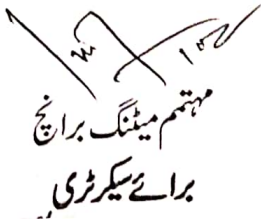 مہتمم میٹنگ برانچ
برائے سیکرٹری